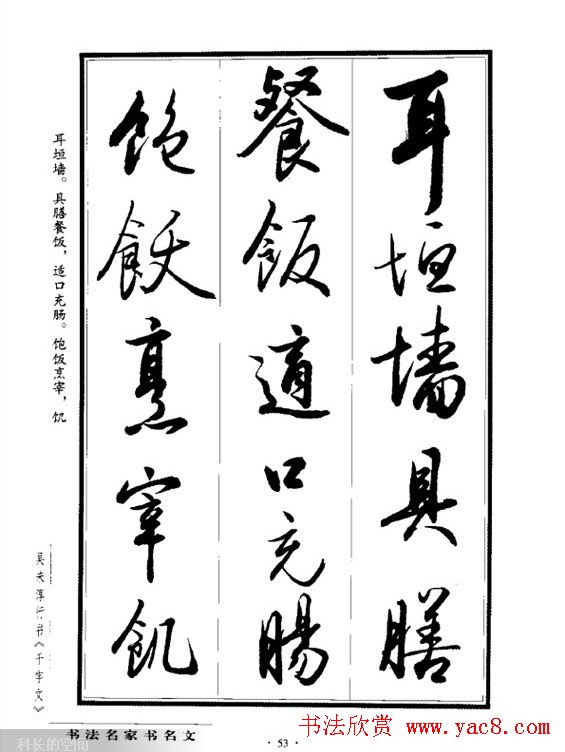 耳垣墙具膳
餐飯適口充腸
飽飫烹宰飢
耳垣墙。具膳餐饭，适口充肠。饱饭烹宰，饥
吴未淳行书《千字文》
书法名家书名文
· 53 ·
书法欣赏 www.yac8.com
科长的空间